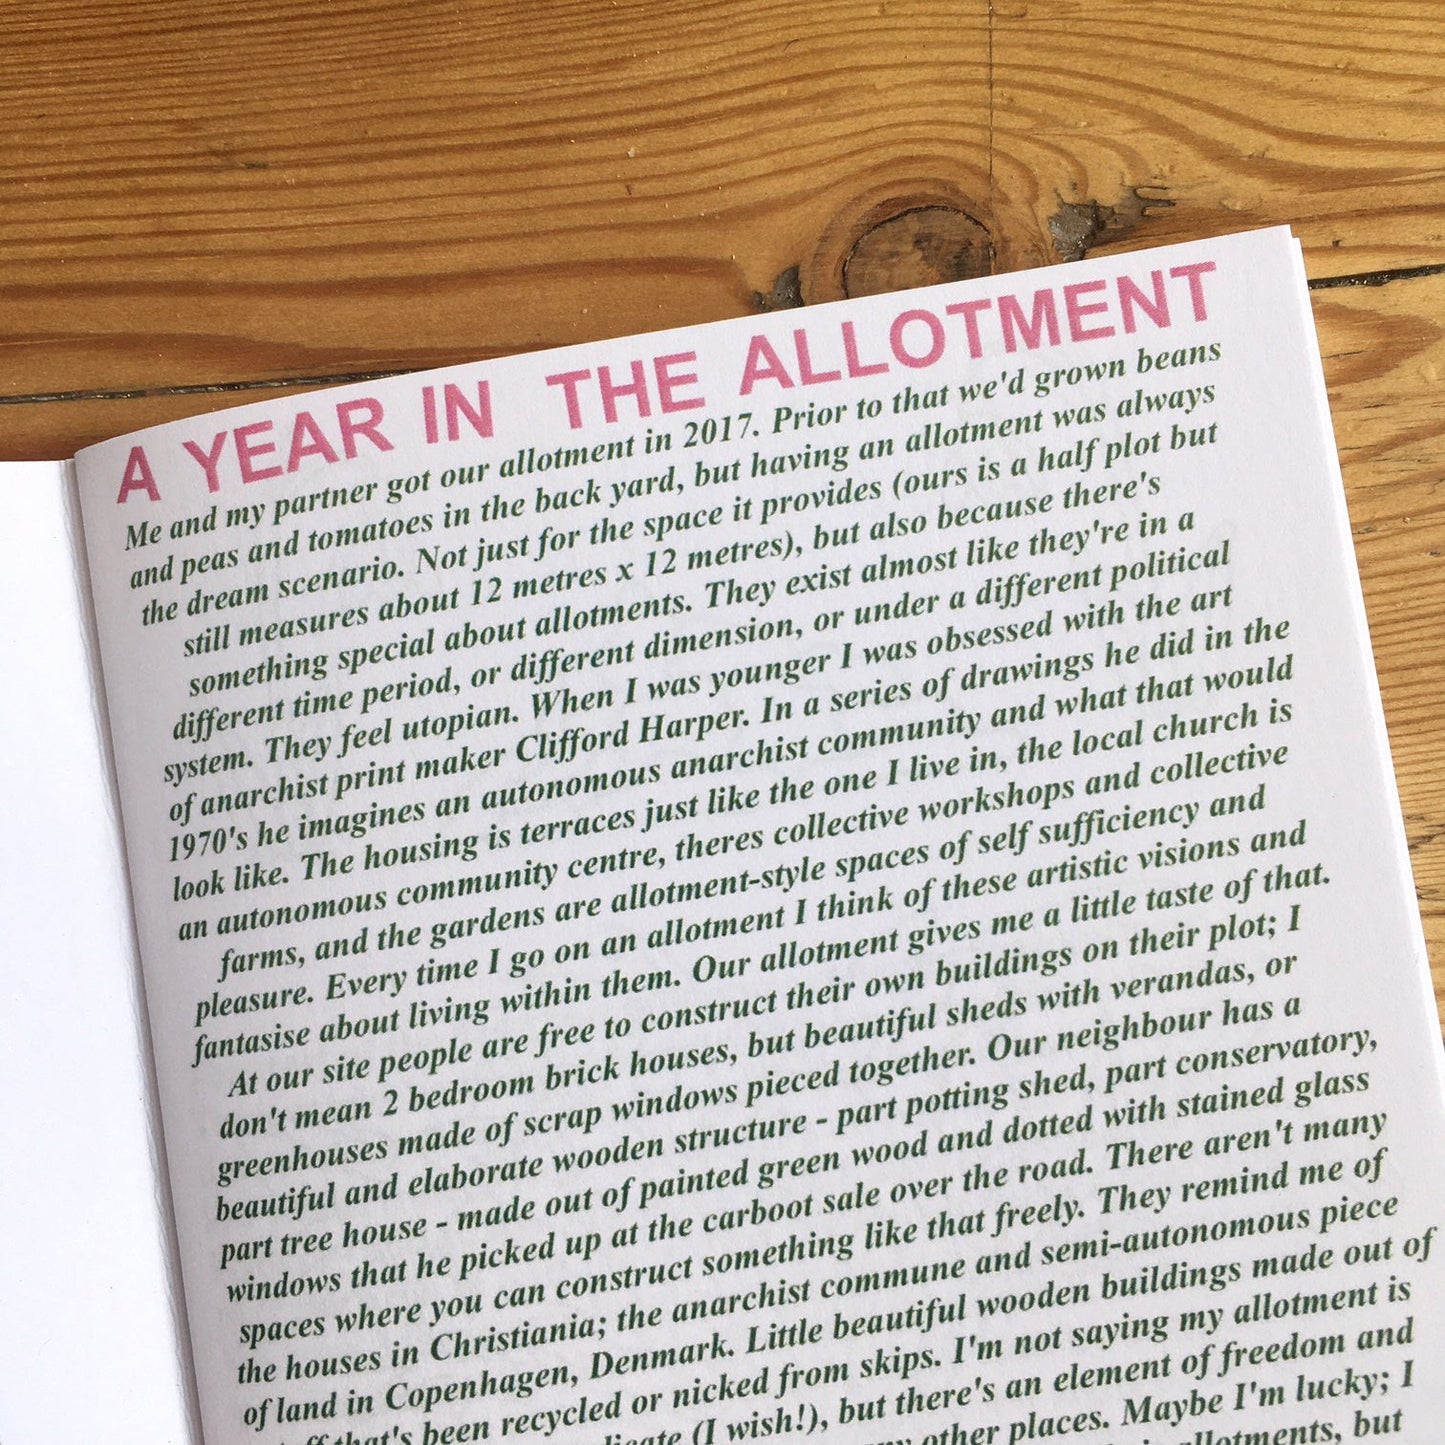 A YEAR IN THE ALLOTMENT
Me and my partner got our allotment in 2017. Prior to that we'd grown beans
and peas and tomatoes in the back yard, but having an allotment was always
the dream scenario. Not just for the space it provides (ours is a half plot but
still measures about 12 metres x 12 metres), but also because there's
something special about allotments. They exist almost like they're in a
different time period, or different dimension, or under a different political
system. They feel utopian. When I was younger I was obsessed with the art
of anarchist print maker Clifford Harper. In a series of drawings he did in the
1970's he imagines an autonomous anarchist community and what that would
look like. The housing is terraces just like the one I live in, the local church is
an autonomous community centre, theres collective workshops and collective
farms, and the gardens are allotment-style spaces of self sufficiency and
pleasure. Every time I go on an allotment I think of these artistic visions and
fantasise about living within them. Our allotment gives me a little taste of that.
At our site people are free to construct their own buildings on their plot; I
don't mean 2 bedroom brick houses, but beautiful sheds with verandas, or
greenhouses made of scrap windows pieced together. Our neighbour has a
beautiful and elaborate wooden structure - part potting shed, part conservatory,
part tree house - made out of painted green wood and dotted with stained glass
windows that he picked up at the carboot sale over the road. There aren't many
spaces where you can construct something like that freely. They remind me of
the houses in Christiania; the anarchist commune and semi-autonomous piece
of land in Copenhagen, Denmark. Little beautiful wooden buildings made out of
that's been recycled or nicked from skips. I'm not saying my allotment is
(I wish!), but there's an element of freedom and
other places. Maybe I'm lucky; I
allotments, but